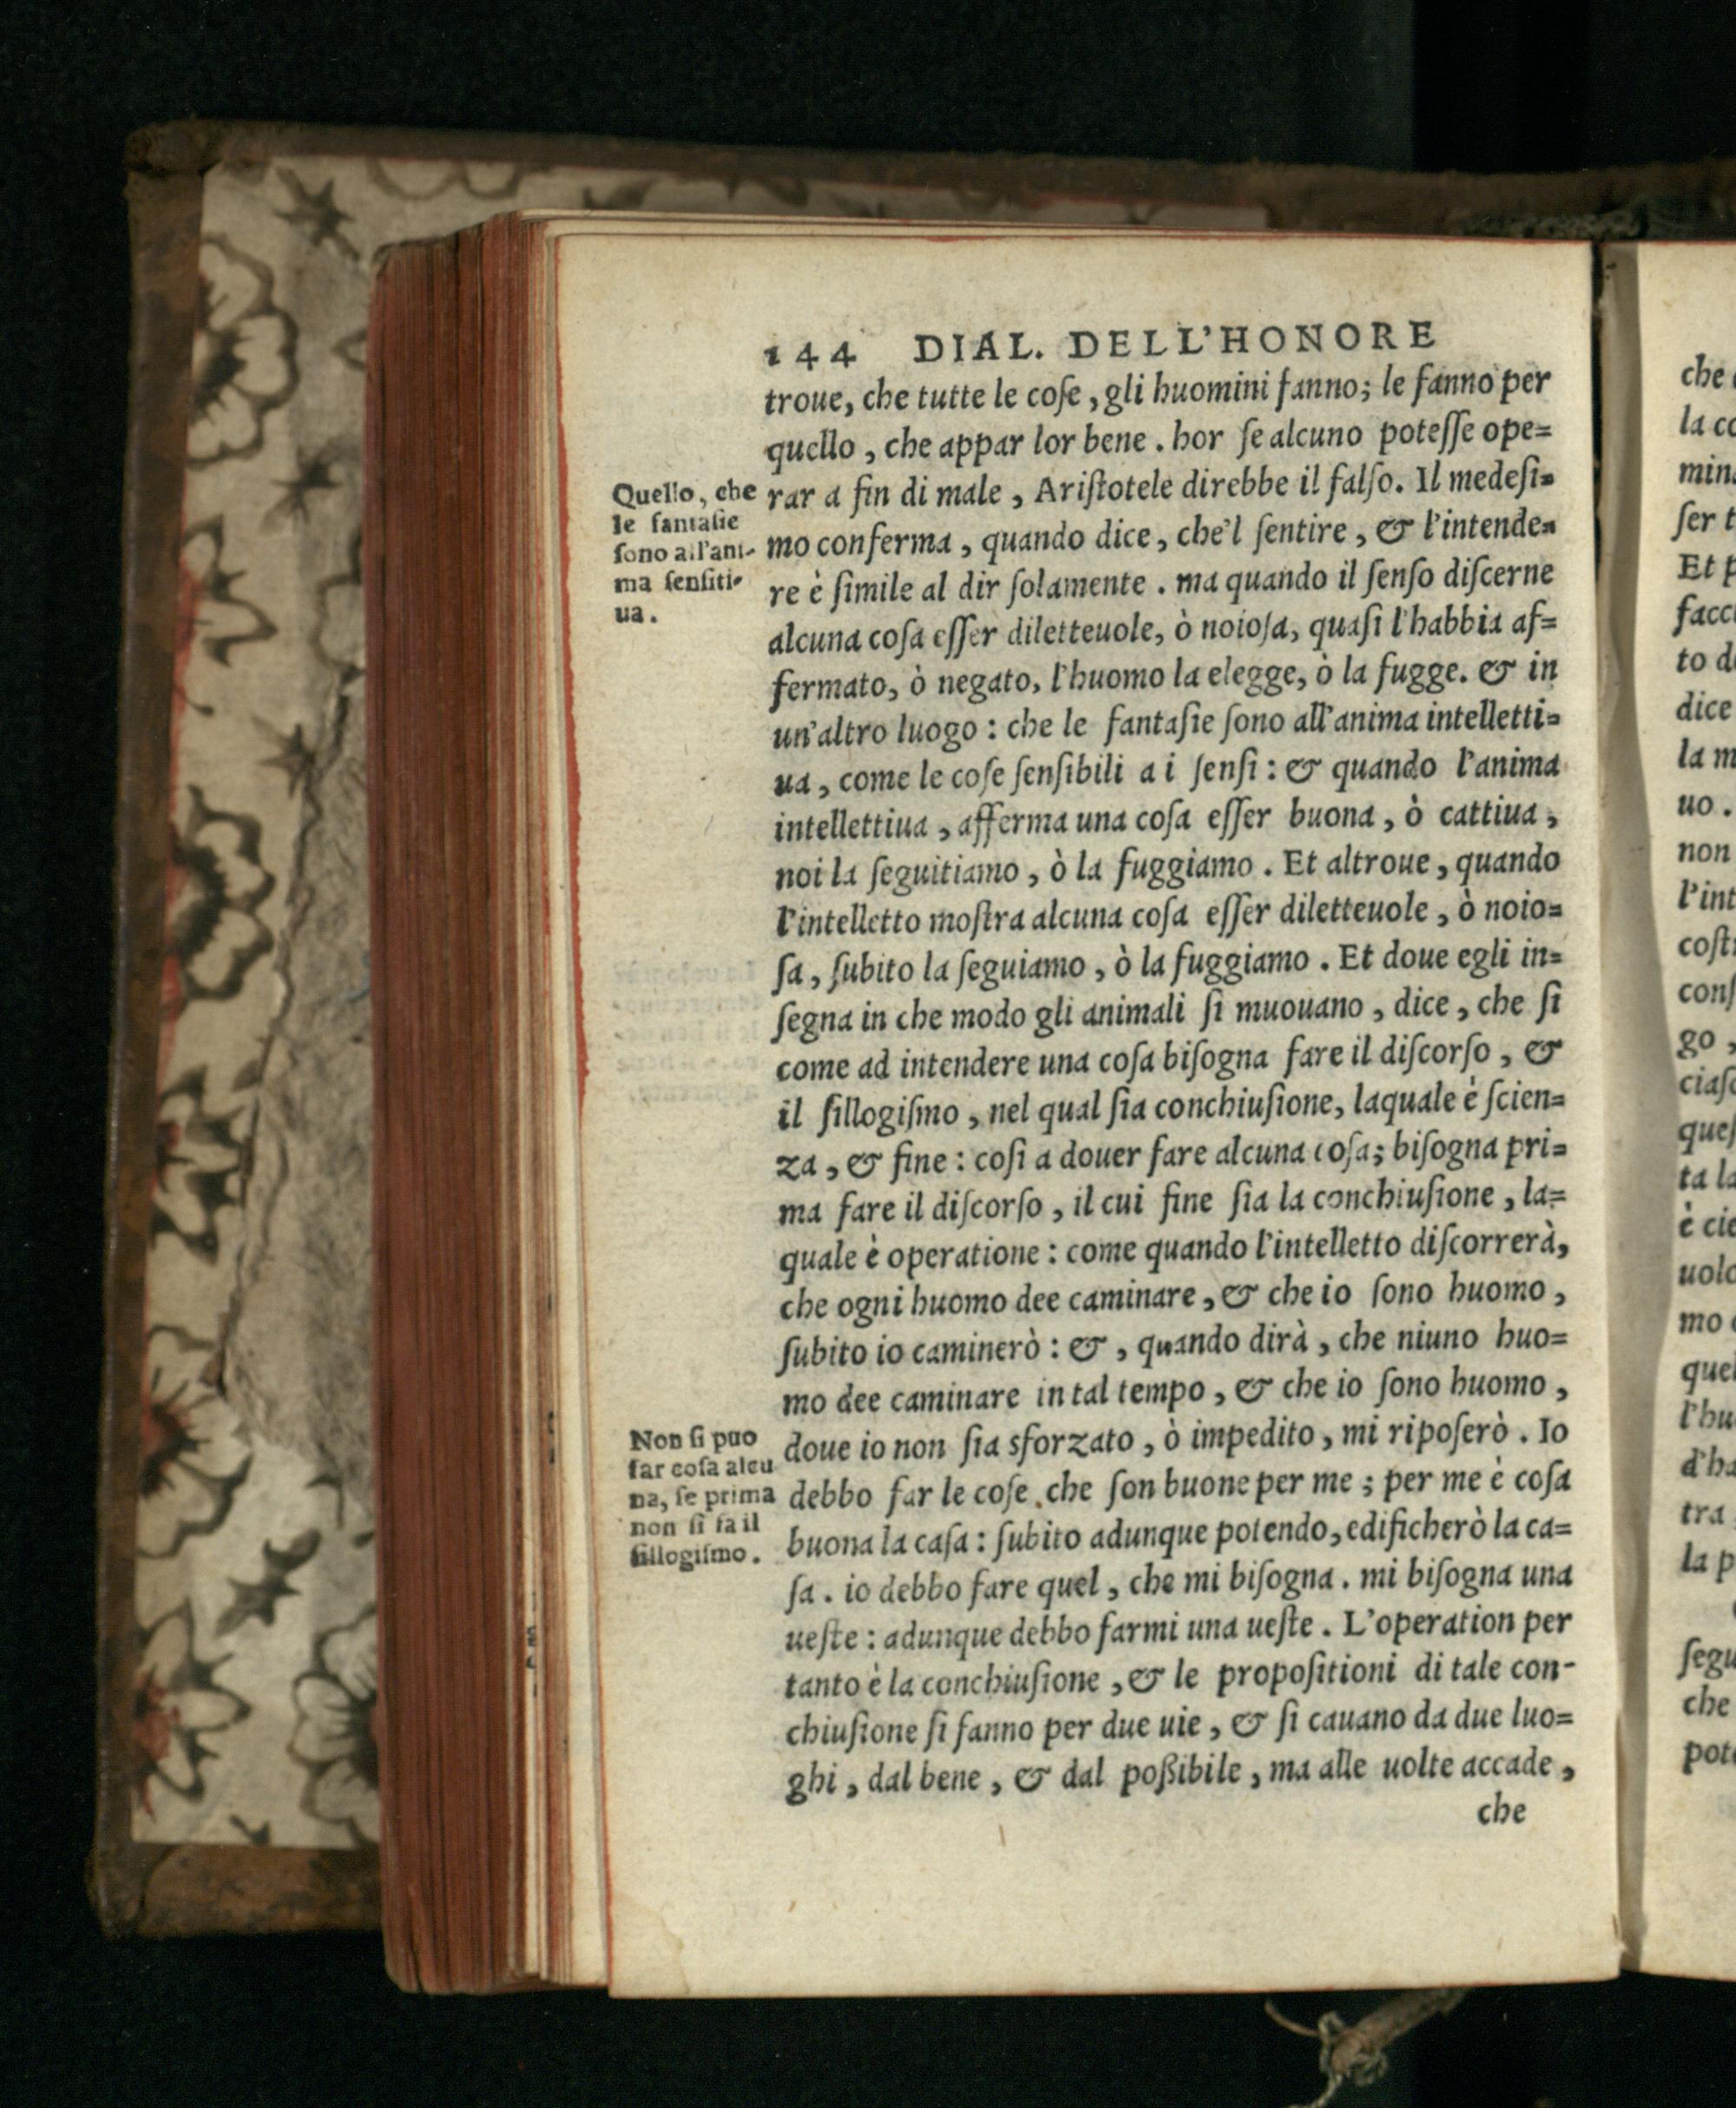 144 DIAL. DELL'HONORE
troue, che tutte le coſe, gli huomini fanno; le fanno per
quello, che appar lor bene. hor ſe alcuno poteſſe ope=
rar a fin di male, Ariſtotele direbbe il falſo. Il medeſi=
mo conferma, quando dice, che'l ſentire, & l'intende=
re è ſimile al dir ſolamente. ma quando il ſenſo diſcerne
alcuna coſa eſſer diletteuole, ò noioſa, quaſi l'habbia af=
fermato, ò negato, l'huomo la elegge, ò la fugge. & in
un'altro luogo: che le fantaſie ſono all'anima intelletti=
ua, come le coſe ſenſibili a i ſenſi: & quando l'anima
intellettiua, afferma una coſa eſſer buona, ò cattiua,
noi la ſeguitiamo, ò la fuggiamo. Et altroue, quando
l'intelletto moſtra alcuna coſa eſſer diletteuole, ò noio=
ſa, ſubito la ſeguiamo, ò la fuggiamo. Et doue egli in=
ſegna in che modo gli animali ſi muouano, dice, che ſi
come ad intendere una coſa biſogna fare il diſcorſo, &
il ſillogiſmo, nel qual ſia conchiuſione, laquale è ſcien=
za, & fine: coſi a douer fare alcuna coſa; biſogna pri=
ma fare il diſcorſo, il cui fine ſia la conchiuſione, la=
quale è operatione: come quando l'intelletto diſcorrerà,
che ogni huomo dee caminare, & che io ſono huomo,
ſubito io caminerò: &, quando dirà, che niuno huo=
mo dee caminare in tal tempo, & che io ſono huomo,
doue io non ſia sforzato, ò impedito, mi ripoſerò. Io
debbo far le coſe che ſon buone per me; per me è coſa
buona la caſa: ſubito adunque potendo, edificherò la ca=
ſa. io debbo fare quel, che mi biſogna. mi biſogna una
ueſte: adunque debbo farmi una ueſte. L'operation per
tanto è la conchiuſione, & le propoſitioni di tale con-
chiuſione ſi fanno per due uie, & ſi cauano da due luo=
ghi, dal bene, & dal poßibile, ma alle uolte accade,
che
Quello, che
le fantaſie
ſono all'ani-
ma ſenſiti-
ua.
Non ſi puo
far coſa alcu
na, ſe prima
non ſi fa il
ſillogiſmo.
che
la
Et
to
dice
la
uo.
non
go,
è
mo
tra
la
che